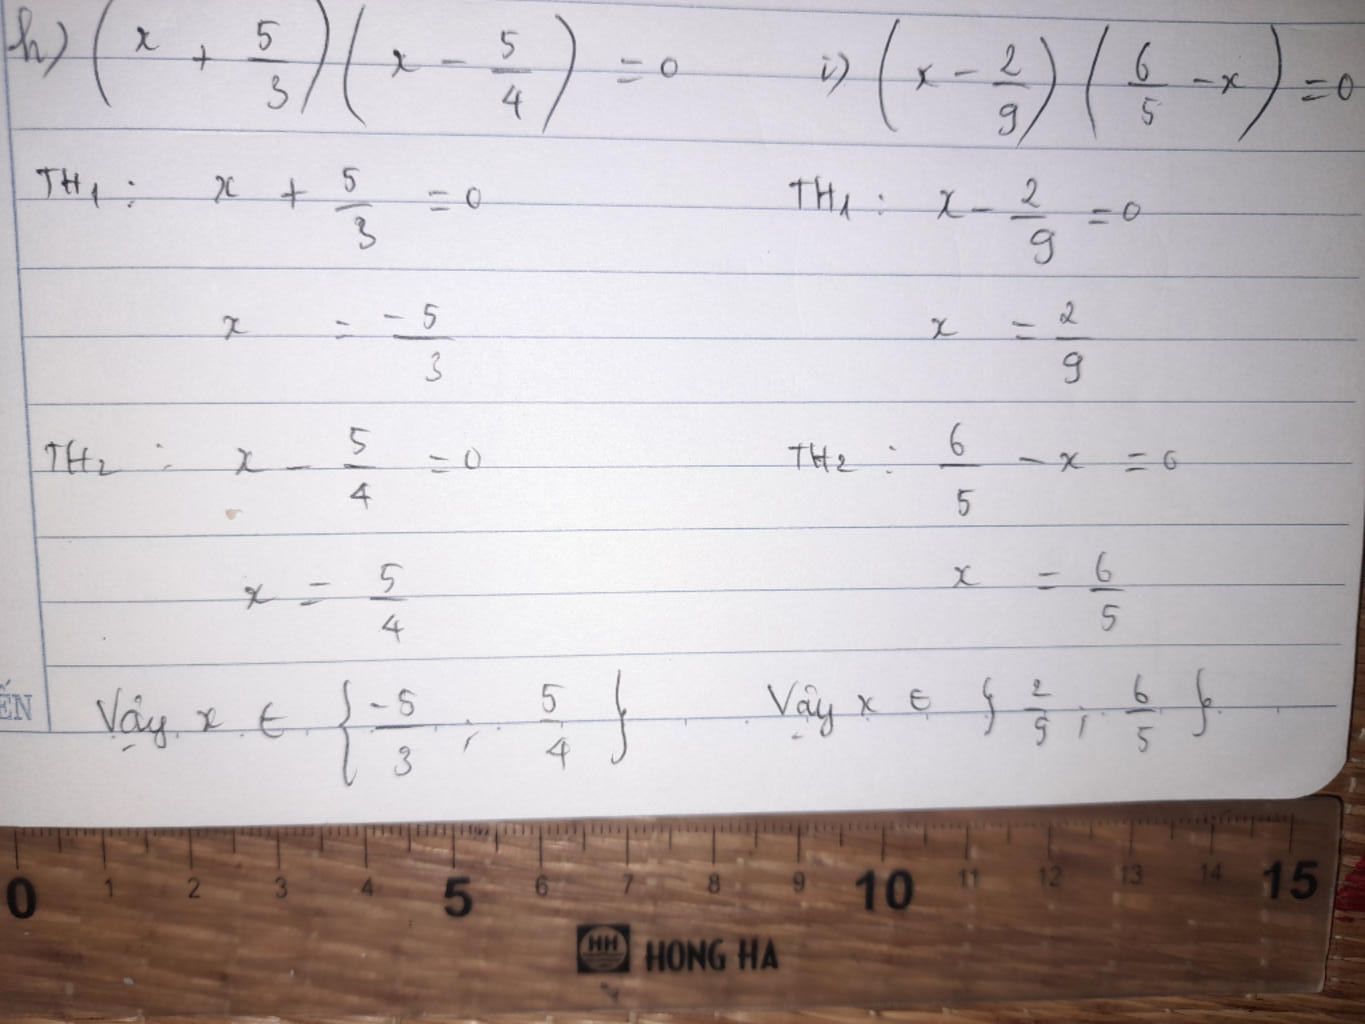 h) (x + 5/3)(x - 5/4) = 0
TH1: x + 5/3 = 0
x = -5/3
TH2: x - 5/4 = 0
x = 5/4
Vậy x ∈ {-5/3; 5/4}
i) (x - 2/9)(6/5 - x) = 0
TH1: x - 2/9 = 0
x = 2/9
TH2: 6/5 - x = 0
x = 6/5
Vậy x ∈ {2/9; 6/5}
ẾN
0 1 2 3 4 5 6 7 8 9 10 11 12 13 14 15
HH HONG HA